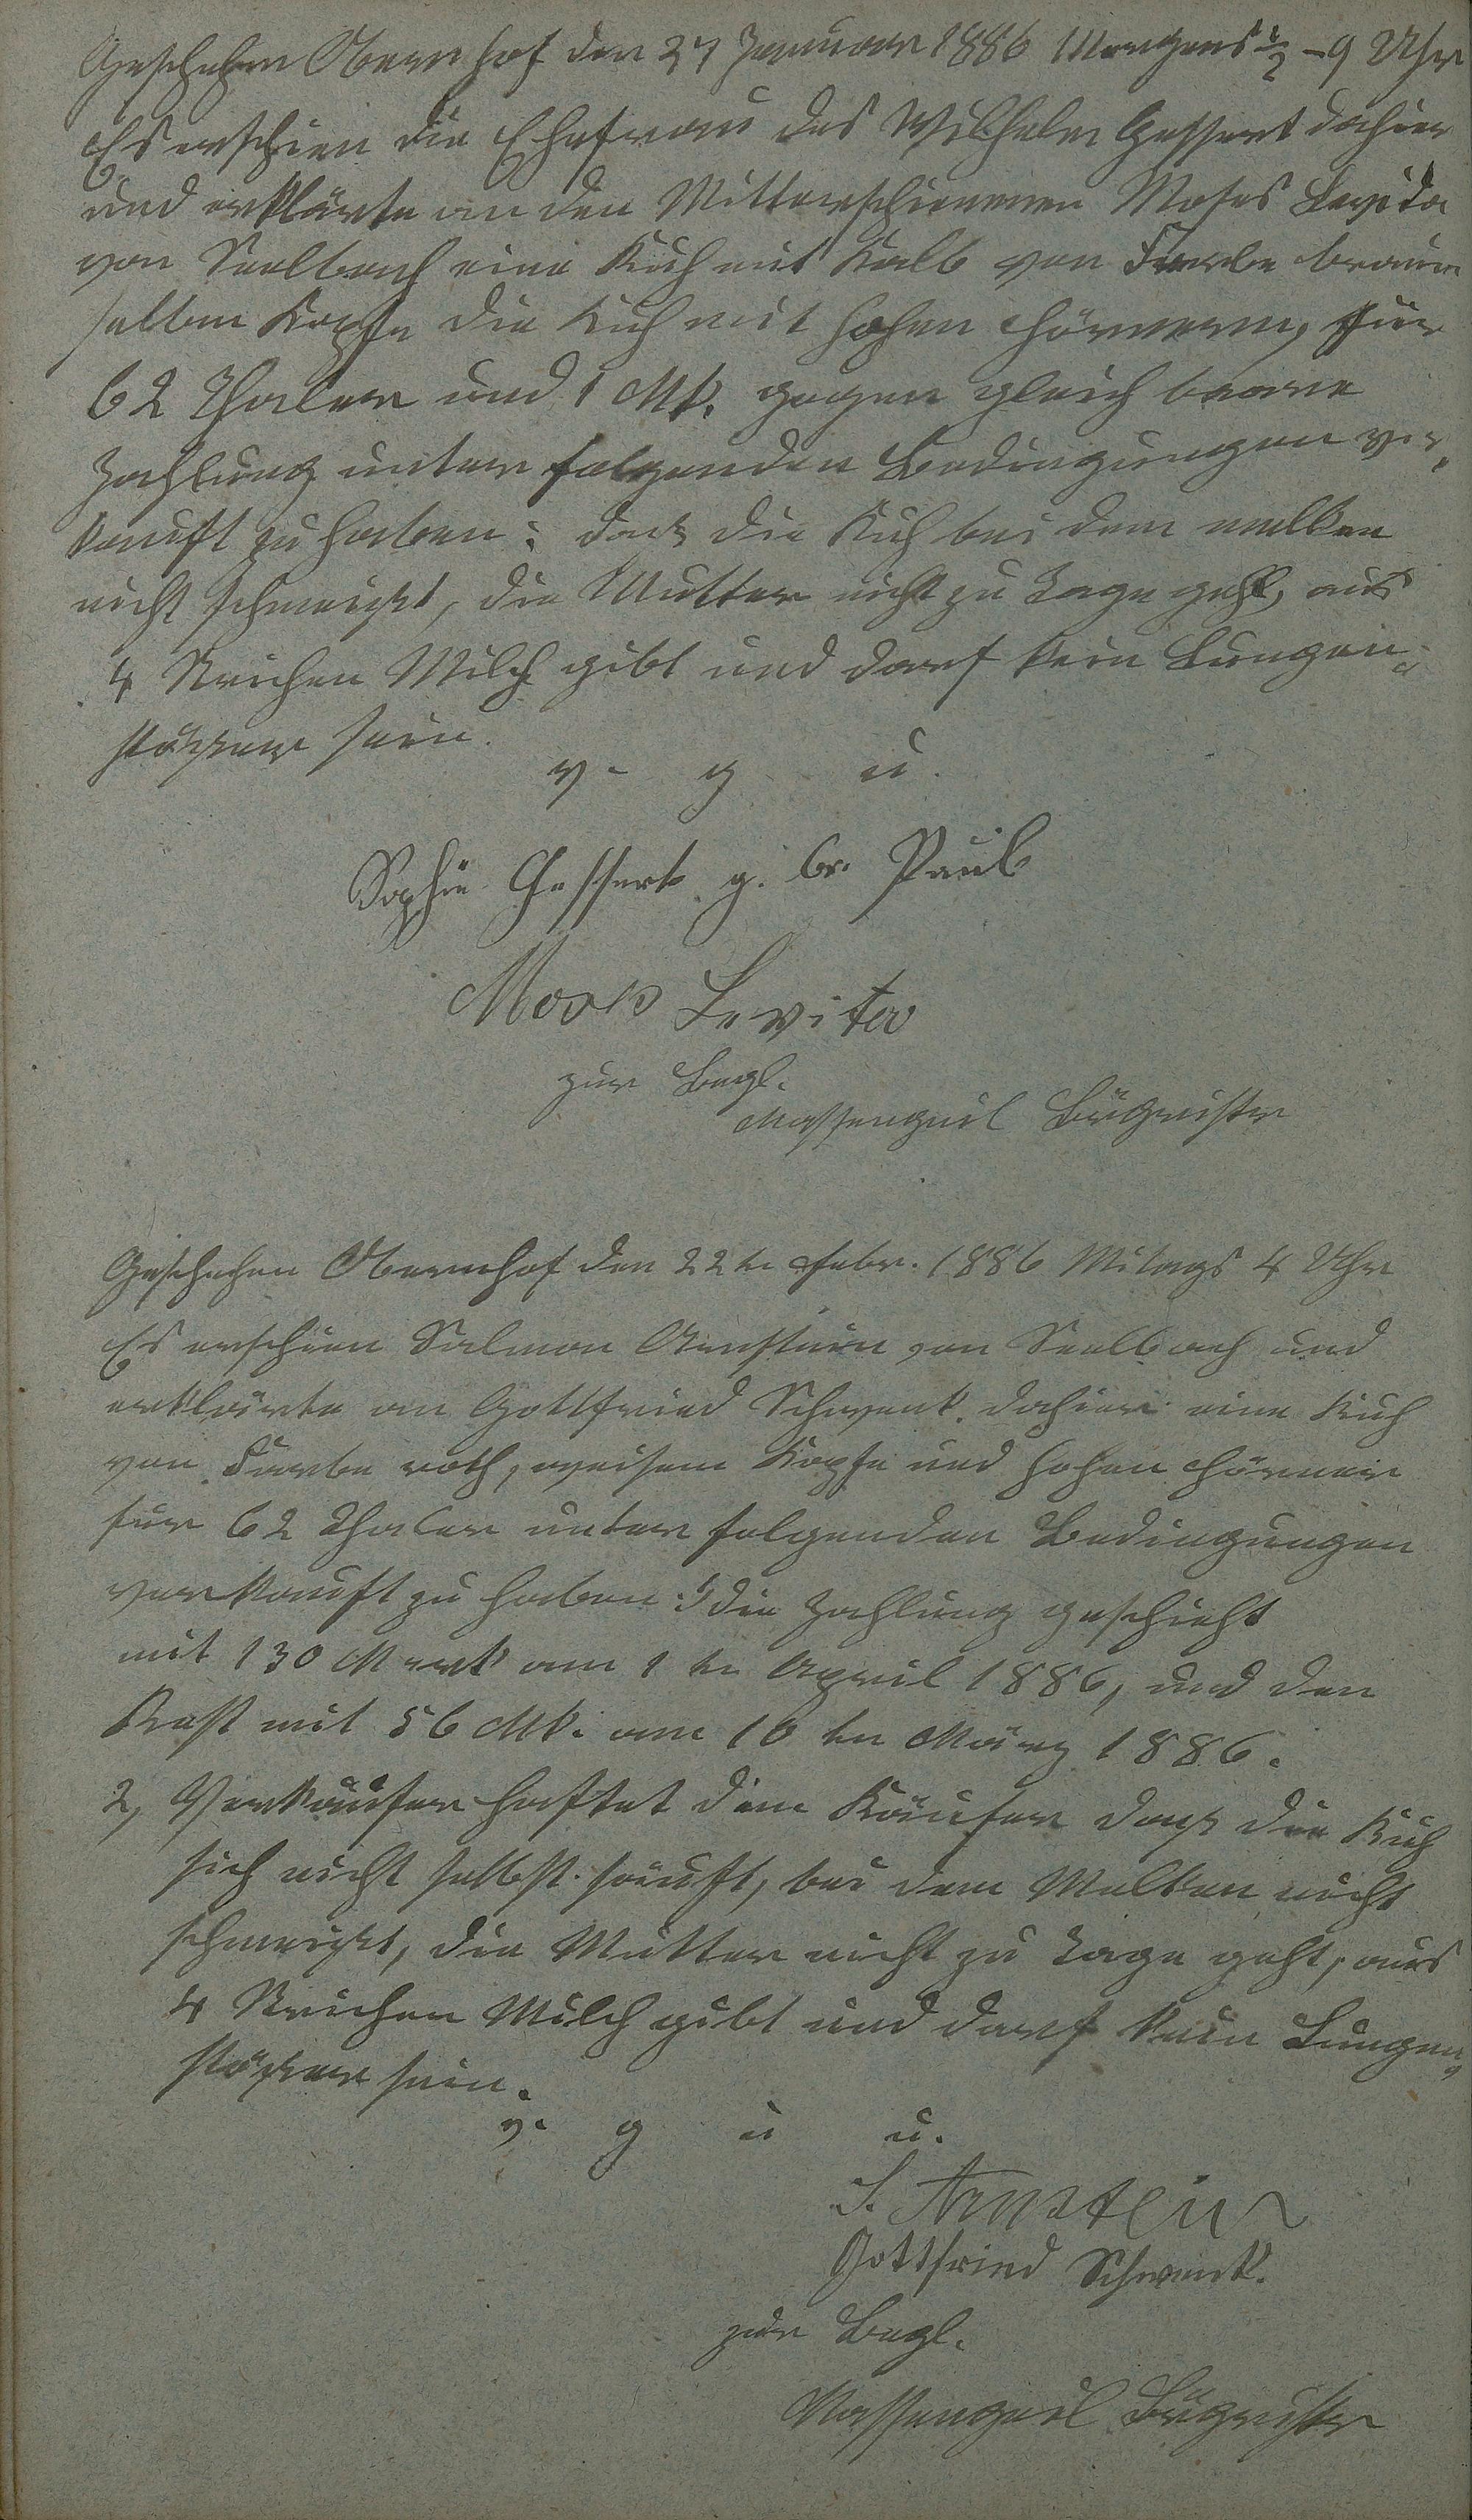 Geschehen Obernhof den 27 Januar 1886 Morgens ½ - 9 Uhr
Es erschien die Ehefrau des Wilhelm Gessert dahier
und erklärte an den Mitterschienenen Moses Levita
von Seelbach eine Kuh mit Kalb von Farbe braun
falben Kopfe die Kuh mit hohen Hörnern, für
62 Thaler und 1 Mk. gegen gleich baare
Zahlung unter folgenden Bedingungen ver-
kauft zu haben: daß die Kuh bei dem melken
nicht schmeißt, die Mutter nicht zu Tage geht, aus
4 Strichen Milch gibt und darf kein Lungen-
stößer sein.
v. g. u.
Sophie Gessert g. br. Paul
Moses Levita
zur Begl.
Massengeil Bügmister
Geschehen Obernhof den 22te Febr. 1886 Mitags 4 Uhr
Es erschien Salmon Arnstein von Seelbach und
erklärte an Gottfried Schwenk dahier eine Kuh
von Farbe roth, weisem Kopfe und hohen Hörner
für 62 Thaler unter folgenden Bedingungen
verkauft zu haben: 1, die Zahlung geschieht
mit 130 Mark am 1 te April 1886, und den
Rest mit 56 Mk. am 10 ten März 1886.
2, Verkäufer haftet dem Käufer daß die Kuh
sich nicht selbst säuft, bei dem Melken nicht
schmeißt, die Mutter nicht zu Tage geht, aus
4 Strichen Milch gibt und darf kein Lungen-
stößer sein.
v. g. u. u.
S. Arnstein
Gottfried Schwenk.
zur Begl.
Massengeil Bügmister